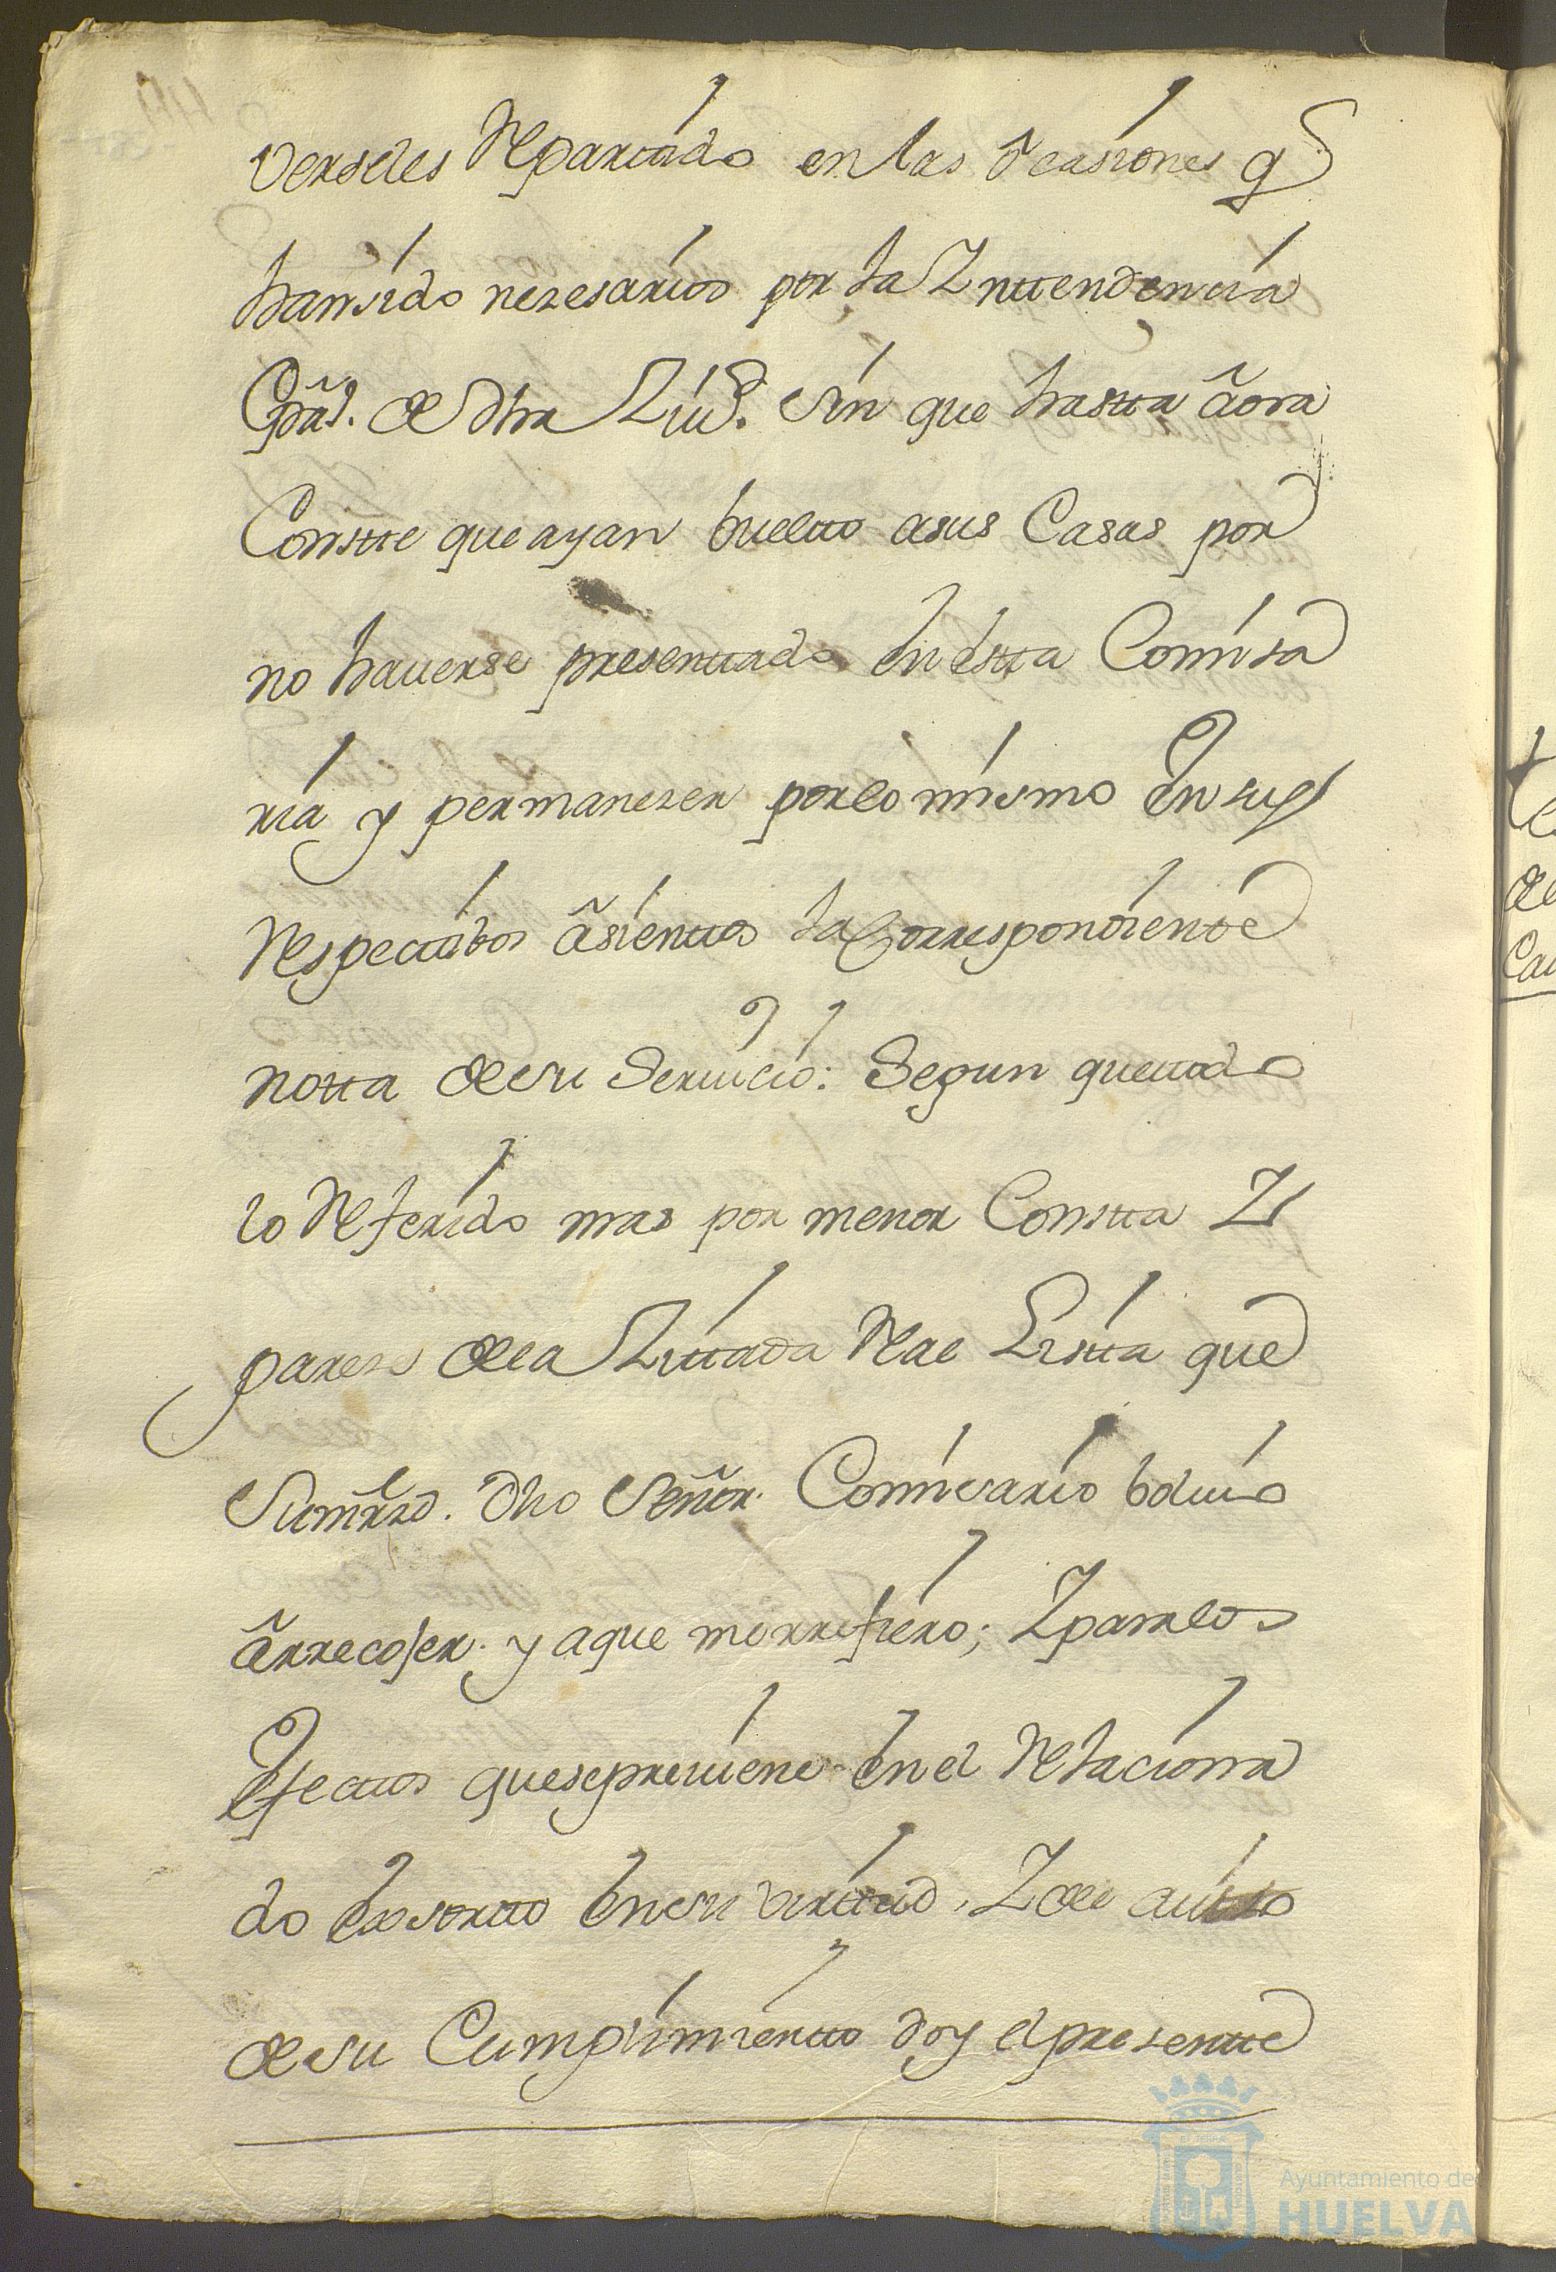 verseles Repartido en las ocasiones q.
han sido nezesarios por la Yntendencia
Gral. de dha Ziud. sin que hasta aora
Constte que ayan buelto a sus Casas por
no hauerse presentado en esta Comisa
ria y permanezer por lo mismo en sus
Respectibos asientos la Correspondiente
notta de su Seruicio: Segun que todo
lo Referido mas por menor Constta Y
pareze de la Zittada Real Lista que
Su mrzd. dho Señor Comisario boluio
a rrecojer y a que me rrefiero; Y para los
efectos que se preuiene en el Relaciona
do exsorto en su virtud, Y de auto
de su Cumplimiento doy el presente
Ayuntamiento de
HUELVA